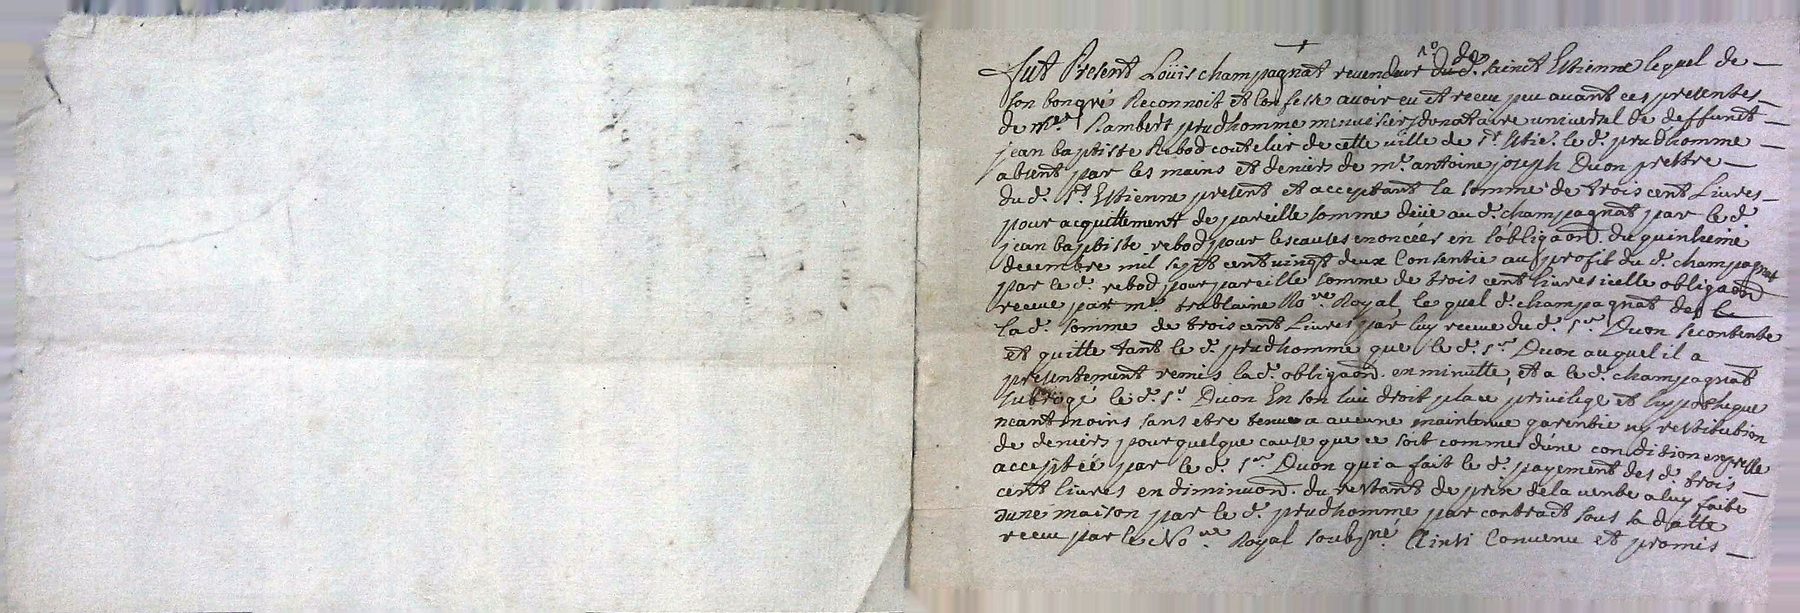 fut Present Loüis champagnat revendeur dud. sainct Estienne lequel de
son bon gré Reconnoit et Confesse avoir eu et receu peu avant ces presentes
de mre Rambert prudhomme menuisier donataire universel de deffunct
jean baptiste Rebod coutelier de cette ville de St Estie. le d. prudhomme
absent par les mains et deniers de mre antoine joseph Duon prettre
du d. St Estienne present et acceptant la somme de trois cent Livres
pour acquittement de pareille somme deüe au d. champagnat par le d.
jean baptiste rebod pour les causes enoncées en l'obligaõn. du quinzieme
decembre mil sept cent vingt deux Consentie au profit du d. champagnat
par le d. rebod pour pareille somme de trois cent livres icelle obligaõn
receue par me. No.re Royal, le quel d. champagnat de
la d. somme de trois cent Livres par luy receue du d. sr. Duon se contente
et quitte tant le d. prudhomme que le d. sr. Duon auquel il a
presentement remis la d. obligaõn. en minutte, et a le d. champagnat
subrogé le d. sr. Duon En son lieu droit place privilege et hypotheque
neantmoins sans etre tenu a aucune maintenue garentie ny restitution
de deniers pour quelque cause que ce soit comme d'une condition expresse
acceptée par le d. sr. Duon qui a fait le d. payement des d. trois
cent livres en diminuõn. du restant de prix de la vente a luy faite
dune maison par le d. prudhomme par contract sous sa datte
receu par le No.re Royal soubzné. Ainsi Convenu et promis